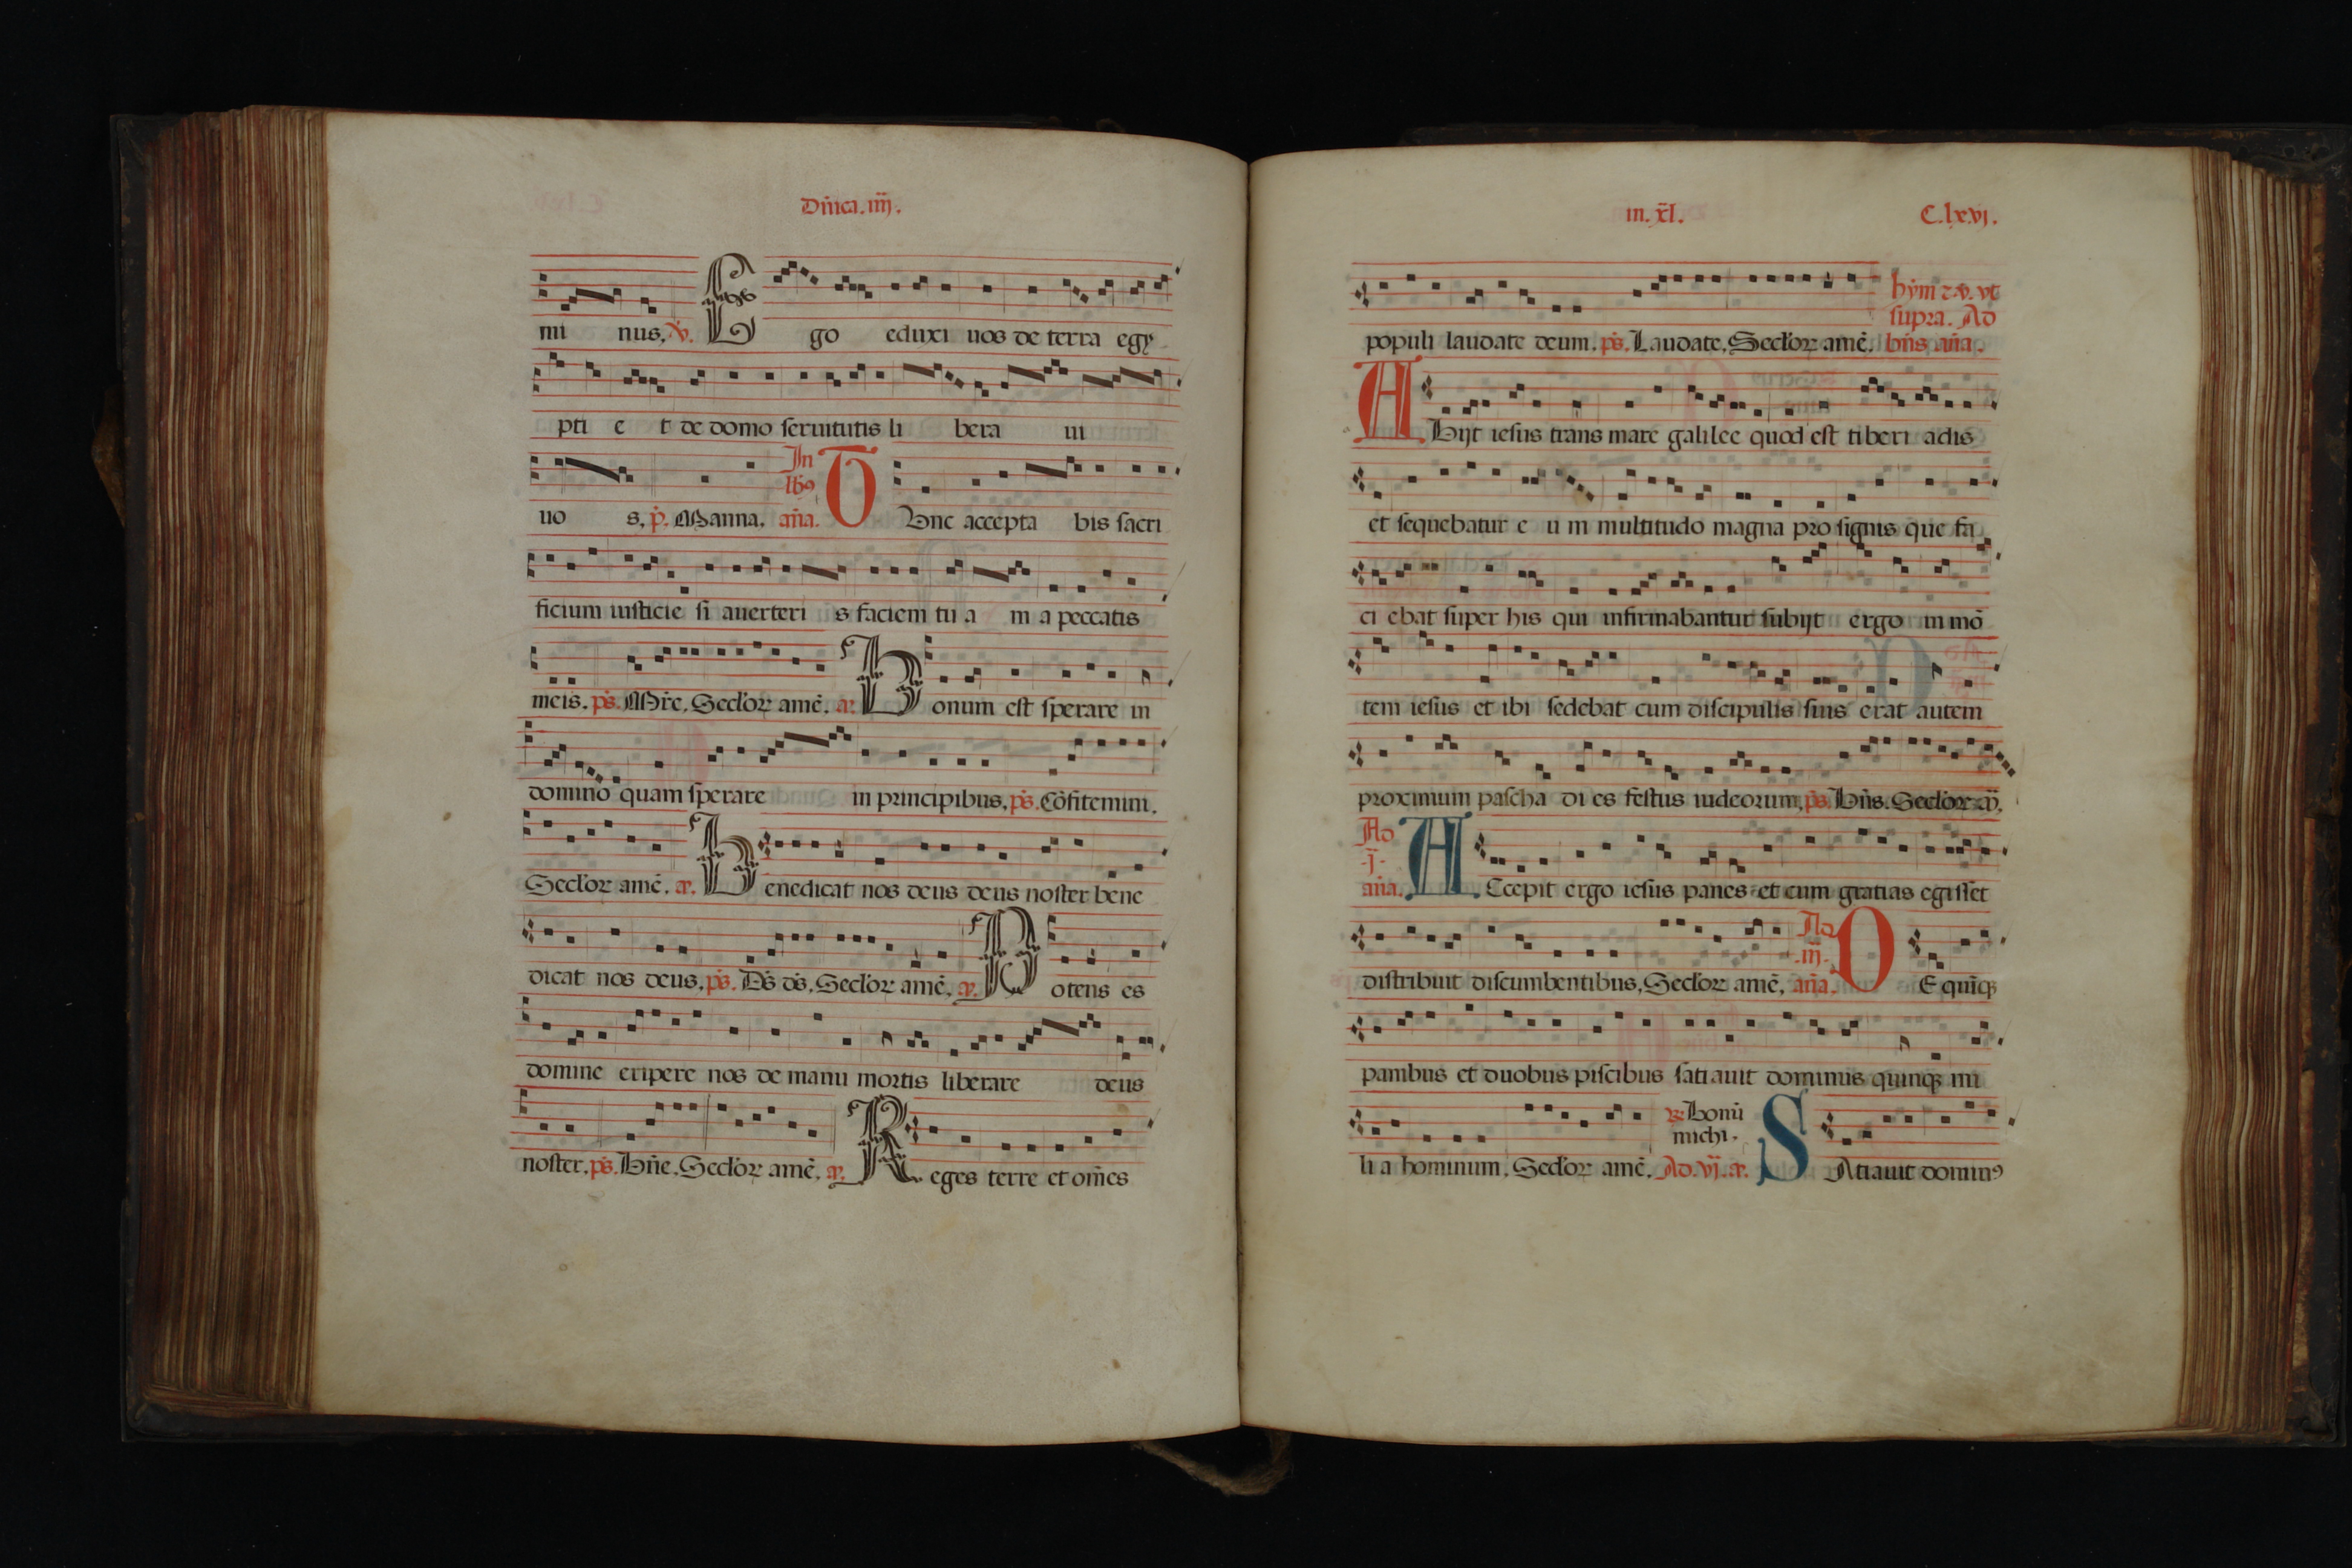 Dñica. iiij.
mi nus, ꝟ. Ego eduxi uos de terra egy
pti e t de domo seruitutis li bera ui
uo s, p̃. Manna. In lb9 añа. Tunc accepta bis sacri
ficium iusticie si auerteri s faciem tu a m a peccatis
meis. ps̃. Mr̃e. Seclor amē. a. Bonum est sperare in
domino quam sperare in principibus, ps̃. Cōfitemini.
Seclor amē. a. Benedicat nos deus deus noster bene
dicat nos deus, ps̃. Ds̃ ds̃. Seclor amē. a. Potens es
domine eripere nos de manu mortis liberare deus
noster. ps̃. Bñe. Seclor amē. a. Reges terre et om̃es
in. xl̃. C.lxvj.
populi laudate deum. ps̃. Laudate. Seclor amē. hỹm ⁊ ꝟ. vt supra. Ad bñs añа.
Abijt iesus trans mare galilee quod est tiberi adis
et sequebatur e u m multitudo magna pro signis que fa
ci ebat super his qui infirmabantur subijt ergo in mō
tem iesus et ibi sedebat cum discipulis suis erat autem
proximum pascha di es festus iudeorum, ps̃. Bñs. Seclor
Ad .j. añа. Accepit ergo iesus panes et cum gratias egisset
distribuit discumbentibus, Seclor amē, Ad .iij. añа. De quīqꝫ
panibus et duobus piscibus satiauit dominus quinqꝫ mi
li a hominum, Seclor amē. ℟. Bonū michi. Ad. vj. a. Satiauit domin9